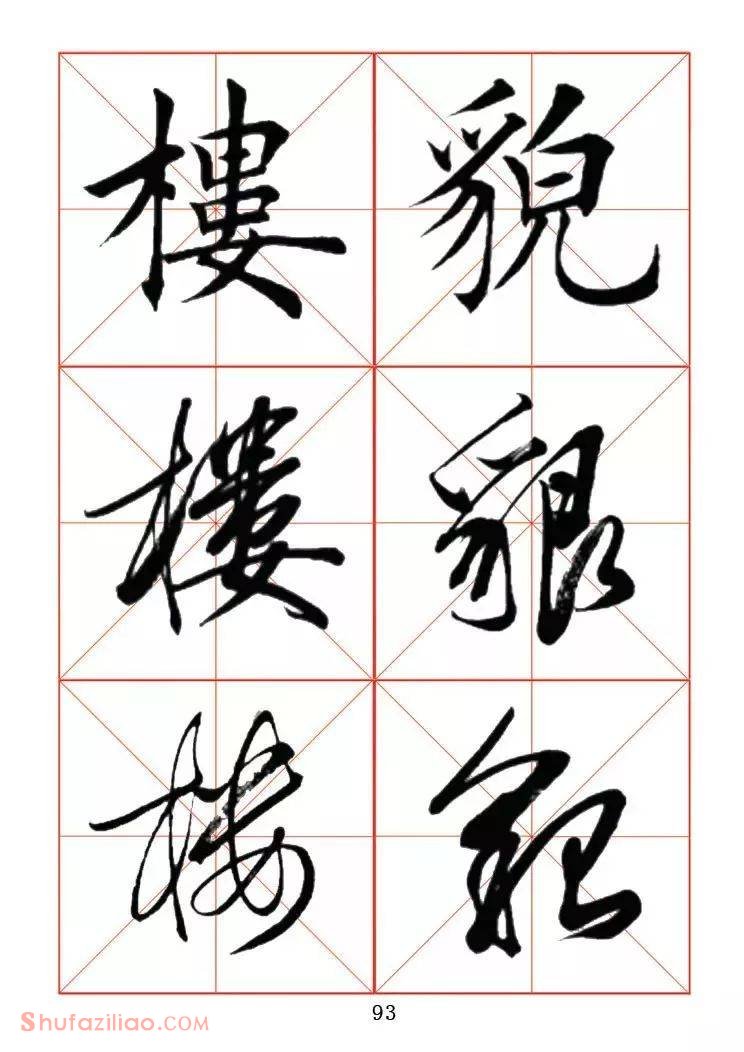 樓 貌
樓 貌
樓 貌
93
Shufaziliao.COM